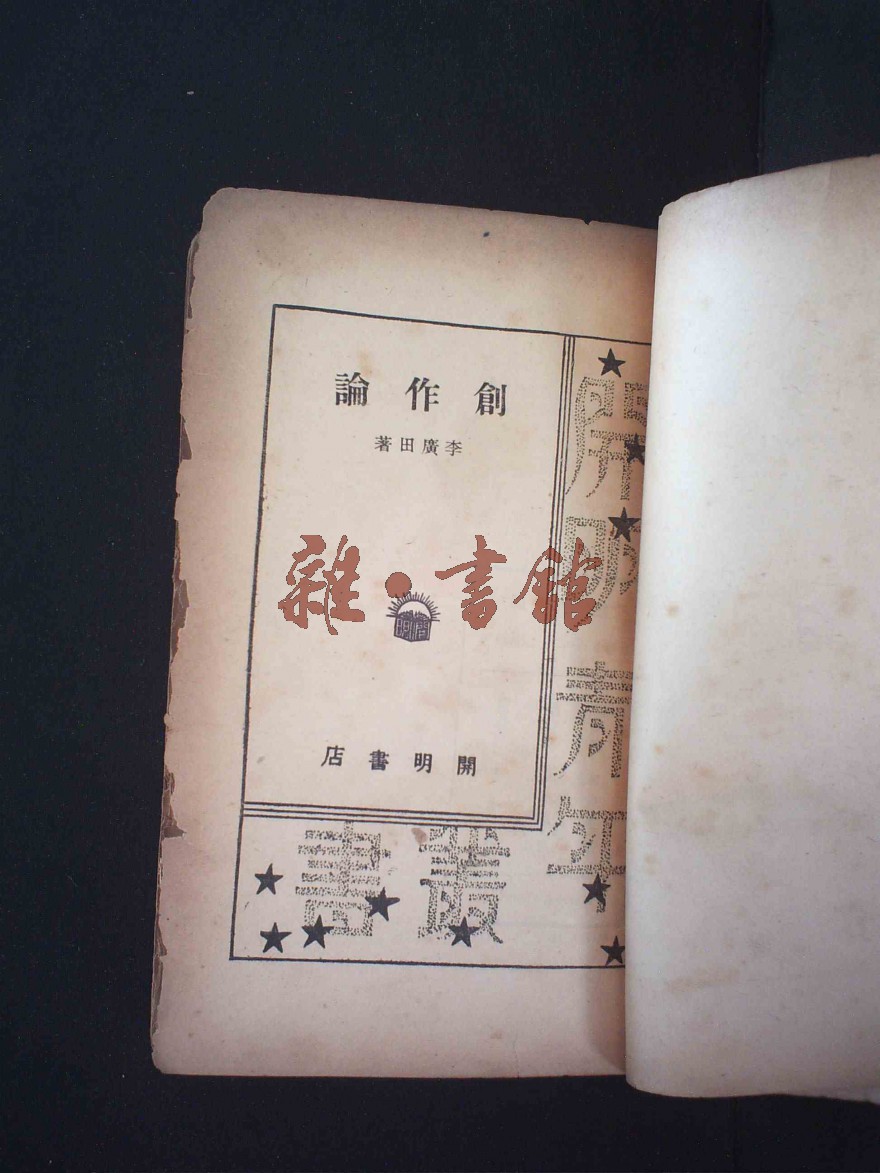 創作論
李廣田著
雜·書館
開明
開明書店
開明青年
叢書